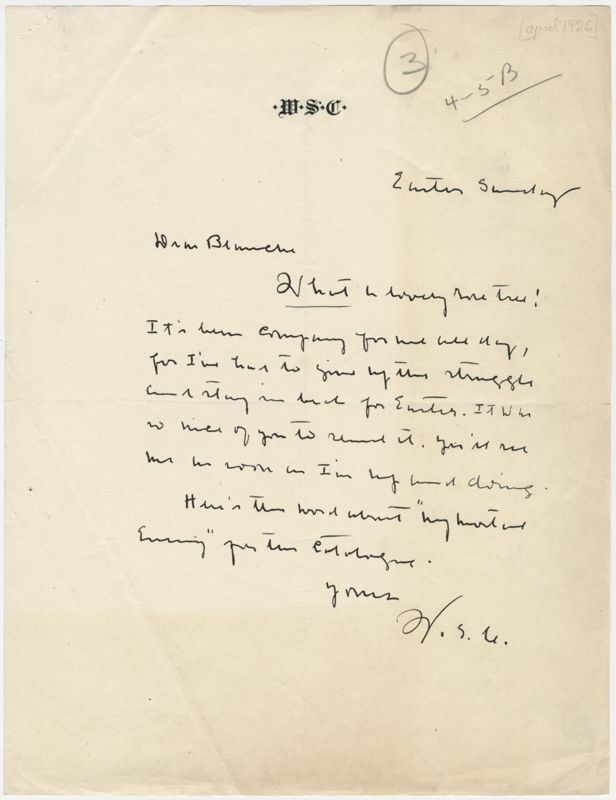 [april 1926]
3
4-5-B
·W·S·C·
Easter Sunday
Dear Blanche
What a lovely rose tree!
It's been company for me all day,
for I've had to give up the struggle
and stay in bed for Easter. It was
so nice of you to send it. You'll see
me as soon as I'm up and doing.
Here's the word about "My Mortal
Enemy" for the Catalogue.
Yours
W. S. C.